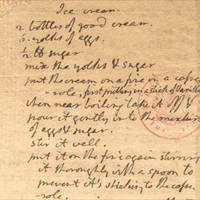 Ice cream.
2. bottles of good cream.
6. yolks of eggs.
1/2 lb sugar
mix the yolks & sugar
put the cream on a fire in a casse-
-role, first putting in a stick of Vanilla.
when near boiling take it off &
pour it gently into the mixture
of eggs & sugar.
stir it well.
put it on the fire again stirring
it thoroughly with a spoon to
prevent it's sticking to the casse-
-role.